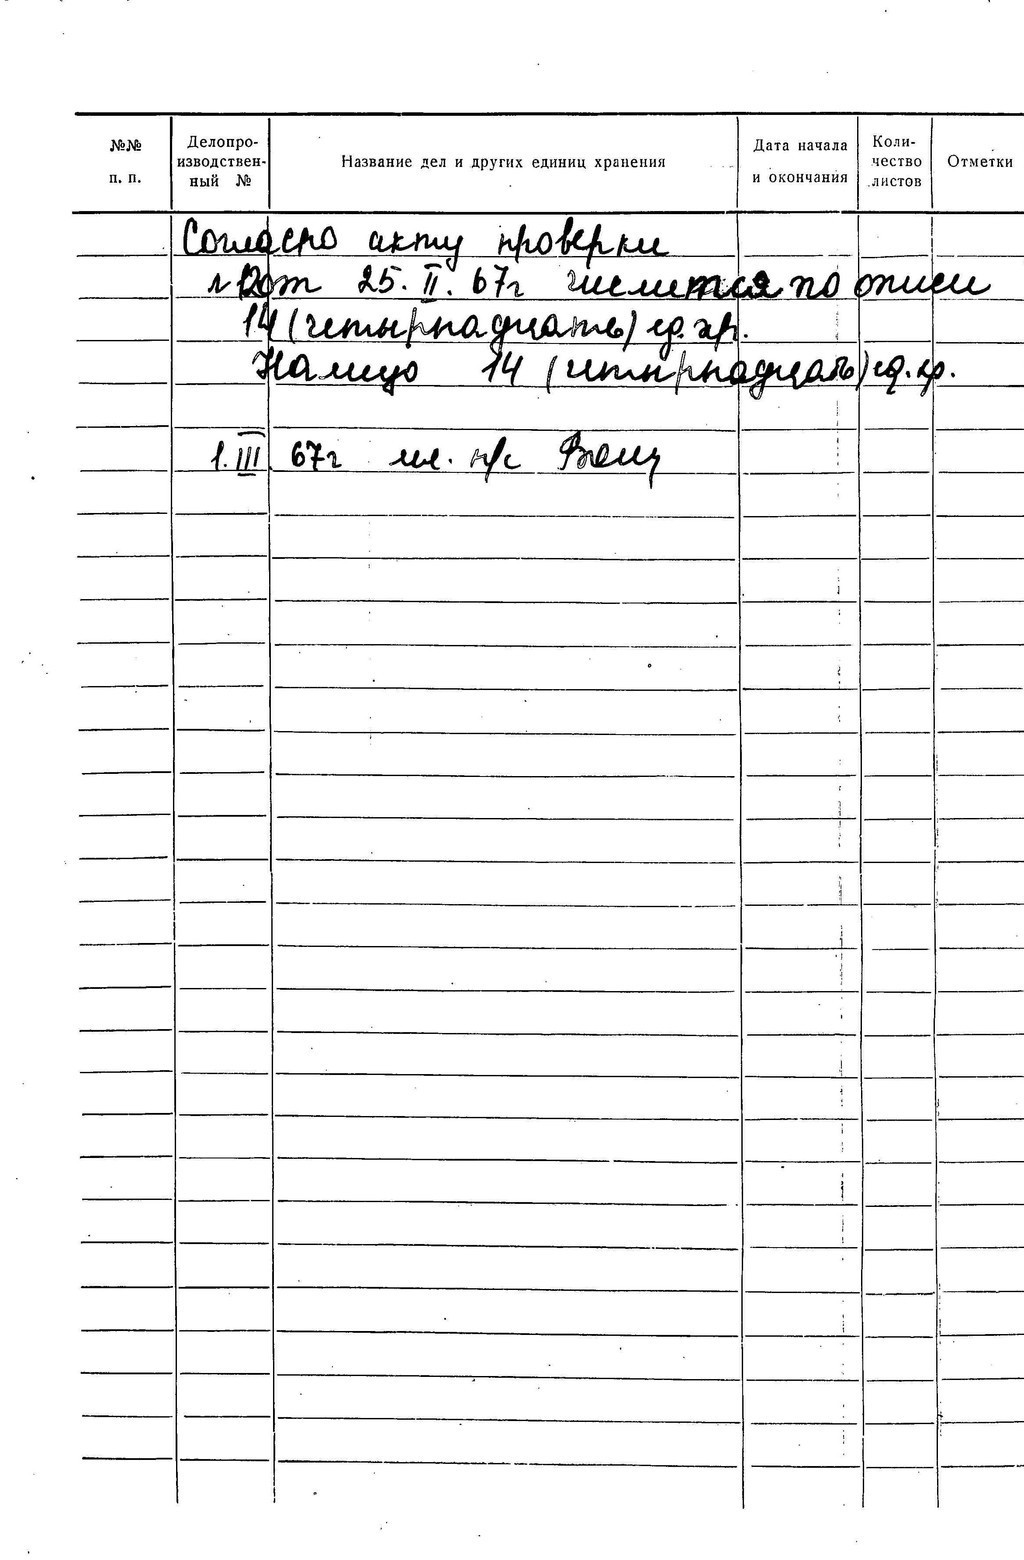 №№ п. п.
Делопро-
изводствен-
ный №
Название дел и других единиц хранения
Дата начала
и окончания
Коли-
чество
листов
Отметки
Согласно акту проверки
от 25. II. 67г числится по описи
14 (четырнадцать) ед. хр.
Налицо 14 (четырнадцать) ед. хр.
1. III 67г мл. н/с